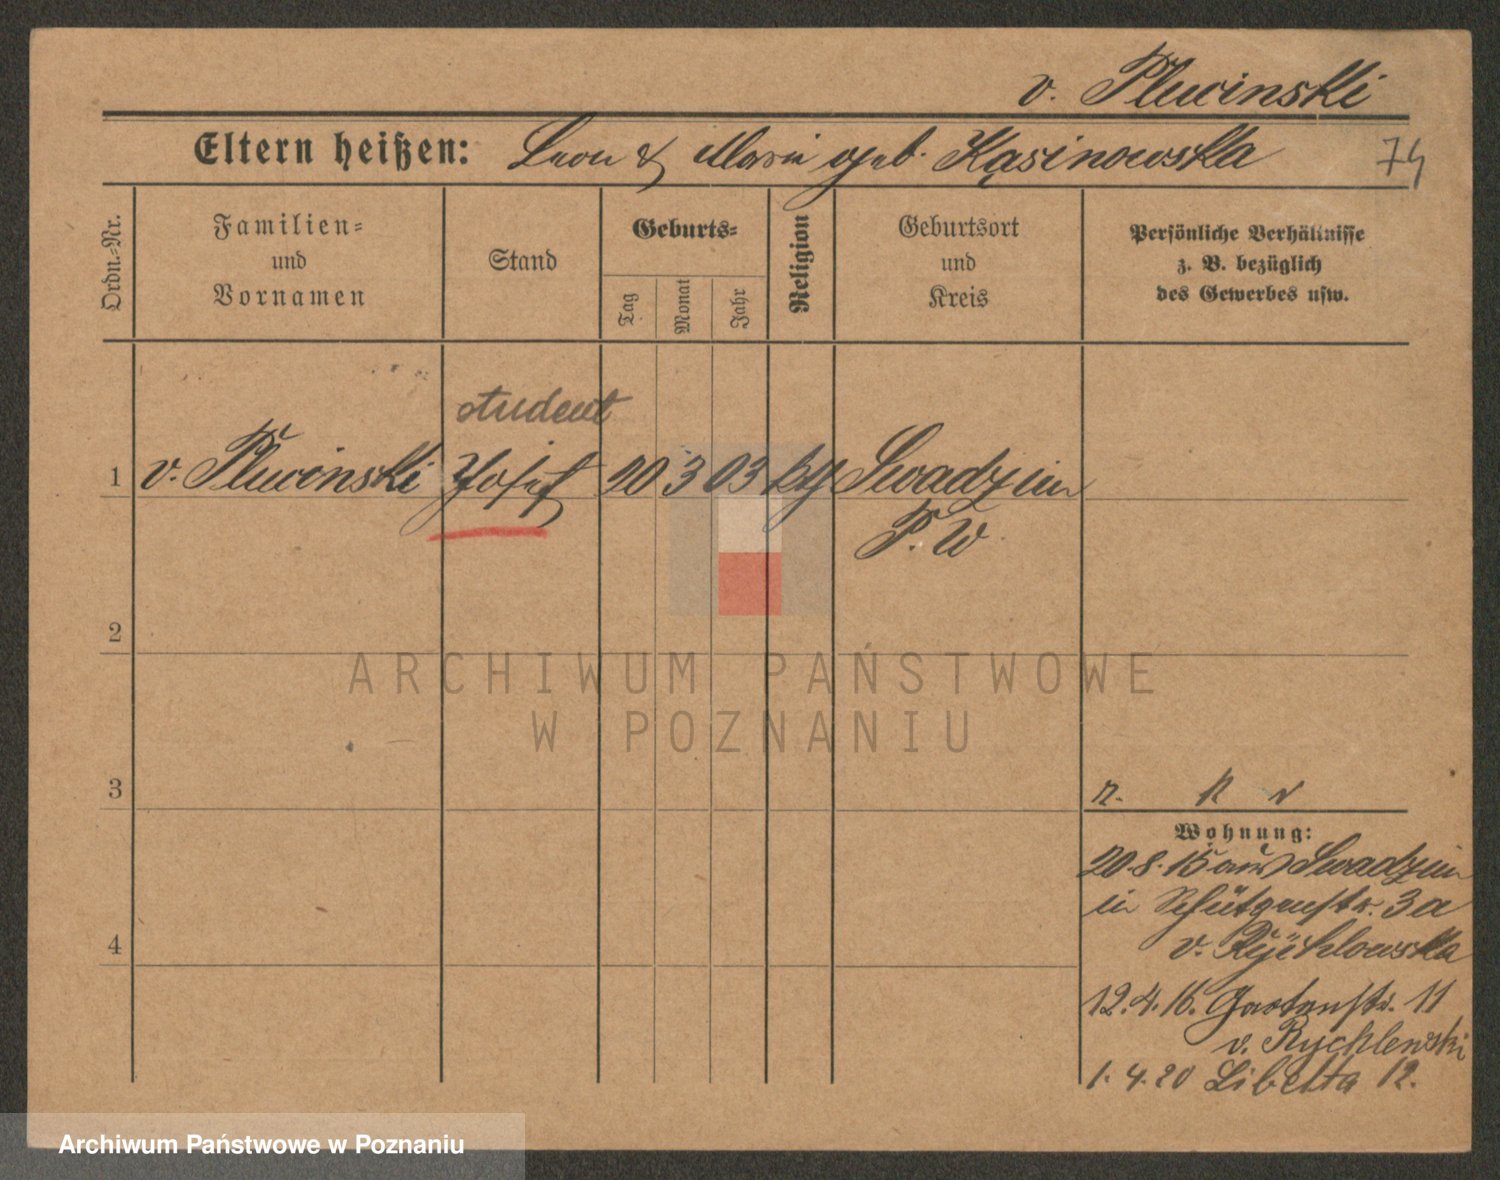 v. Pluciński
Eltern heißen: Leon & Maria geb. Kąsinowska
74
Ordn.-Nr.
Familien-
und
Vornamen
Stand
Geburts-
Tag
Monat
Jahr
Religion
Geburtsort
und
Kreis
Persönliche Verhältnisse
z. B. bezüglich
des Gewerbes usw.
student
1 v. Pluciński Josef 20 3 03 kg Swadzim
P. W
2
ARCHIWUM PAŃSTWOWE
W POZNANIU
3
r.
Wohnung:
20.8.15 aus Swadzim
in Schützenstr. 3a
v. Rychlowska
12.4.16. Gartenstr. 11
v. Rychlewski
4
1.4.20 Libelta 12.
Archiwum Państwowe w Poznaniu